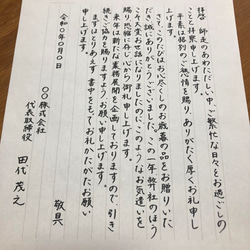 拝啓 師走のあわただしい中、ご繁忙な日々をお過ごしの
ことと拝察申し上げます。
平素は格別のご懇情を賜り、ありがたく厚くお礼申し
上げます。
さて、このたびはお心尽くしのお歳暮の品をお贈りいた
だき、誠にありがとうございました。この一年弊社のほう
こそ大変お世話になりましたのに、このようなお気遣いを
賜り、恐縮しつつも心から御礼申し上げます。
来年は新たな業務展開を企画しておりますので、引き
続きご協力を賜りますようお願い申し上げます。
まずはとりあえず書中をもってお礼かたがたお願い
申し上げます。
敬具
令和〇年〇月〇日
〇〇株式会社
代表取締役
田代 茂之